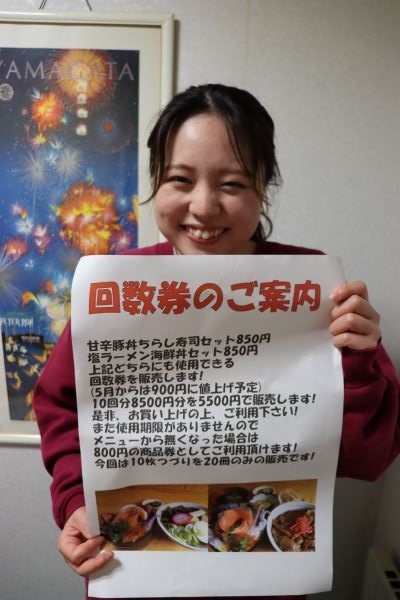 YAMAGATA
PETER PAN
回数券のご案内
甘辛豚丼ちらし寿司セット850円
塩ラーメン海鮮丼セット850円
上記どちらにも使用できる
回数券を販売します!
(5月からは900円に値上げ予定)
10回分8500円分を5500円で販売します!
是非、お買い上げの上、ご利用下さい!
また使用期限がありませんので
メニューから無くなった場合は
800円の商品券としてご利用頂けます!
今回は10枚つづりを20冊のみの販売です!